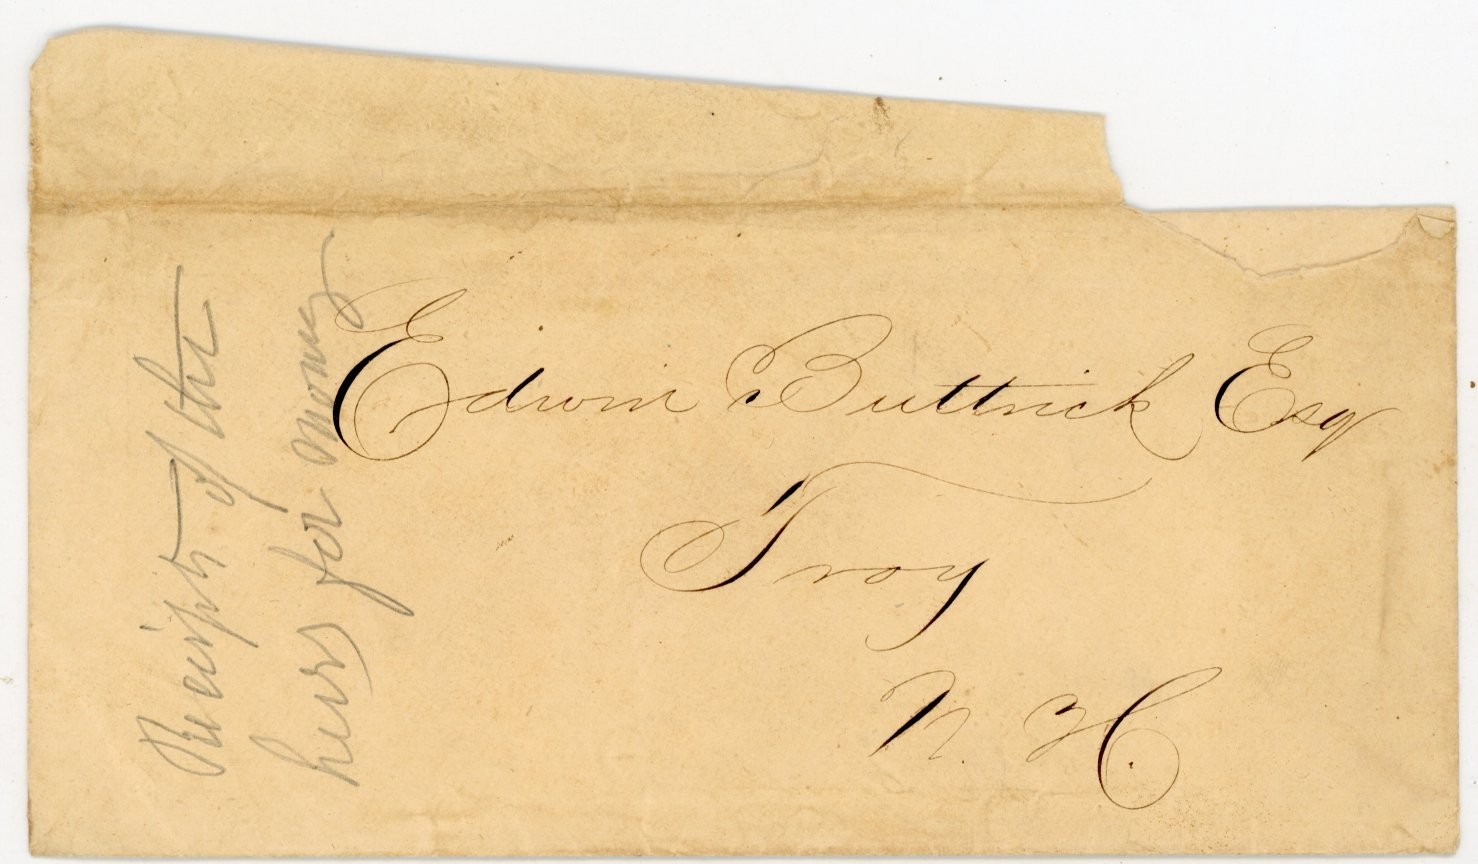 Edwin Buttrick Esq
Troy
N. H.
Receipts of the
heirs for money